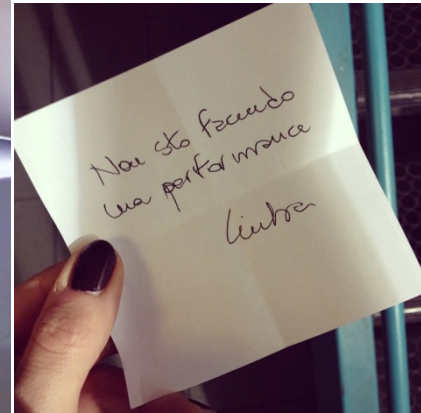 Non sto facendo
una performance